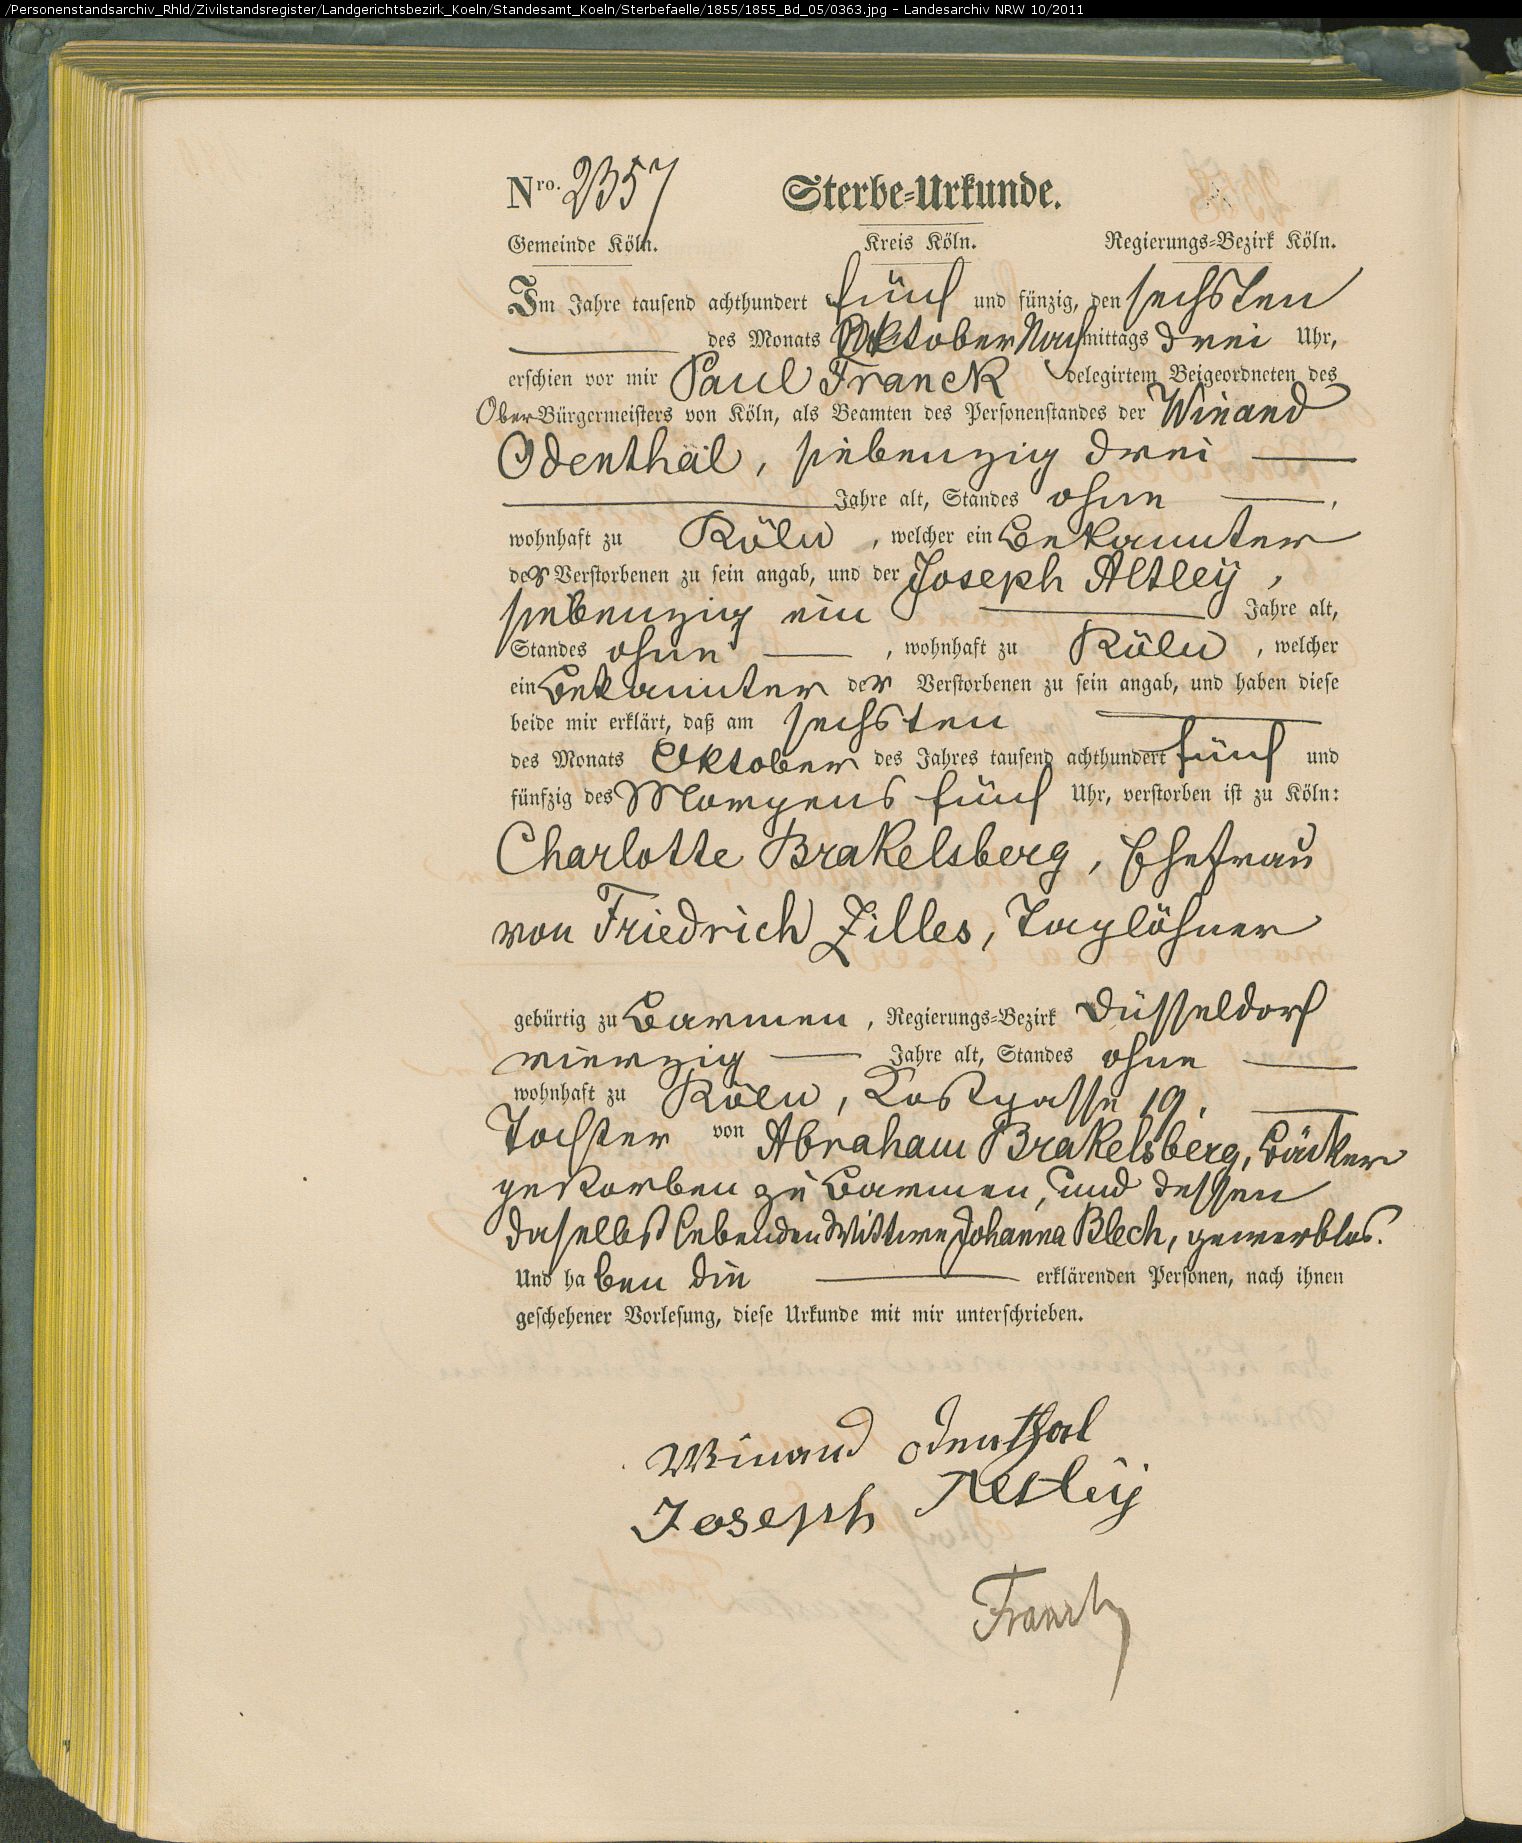 /Personenstandsarchiv_Rhld/Zivilstandsregister/Landgerichtsbezirk_Koeln/Standesamt_Koeln/Sterbefaelle/1855/1855_Bd_05/0363.jpg - Landesarchiv NRW 10/2011
Nro. 2357 Sterbe-Urkunde.
Gemeinde Köln. Kreis Köln. Regierungs-Bezirk Köln.
Im Jahre tausend achthundert fünf und fünzig, den sechsten
des Monats Oktober Nachmittags drei Uhr,
erschien vor mir Paul Franck delegirtem Beigeordneten des
Ober Bürgermeisters von Köln, als Beamten des Personenstandes der Winand
Odenthal, siebenzig drei
Jahre alt, Standes ohne ,
wohnhaft zu Köln , welcher ein Bekannter
der Verstorbenen zu sein angab, und der Joseph Altley ,
siebenzig ein Jahre alt,
Standes ohne , wohnhaft zu Köln , welcher
ein Bekannter der Verstorbenen zu sein angab, und haben diese
beide mir erklärt, daß am sechsten
des Monats Oktober des Jahres tausend achthundert fünf und
fünfzig des Morgens fünf Uhr, verstorben ist zu Köln:
Charlotte Brakelsberg, Ehefrau
von Friedrich Zilles, Taglöhner
gebürtig zu Barmen , Regierungs-Bezirk Düsseldorf
vierzig Jahre alt, Standes ohne
wohnhaft zu Köln, Kostgasse 19.
Tochter von Abraham Brakelsberg, Bäcker
gestorben zu Barmen, und dessen
daselbst lebenden Wittwe Johanna Blech, gewerblos.
Und haben die erklärenden Personen, nach ihnen
geschehener Vorlesung, diese Urkunde mit mir unterschrieben.
Winand Odenthal
Joseph Altley
Franck